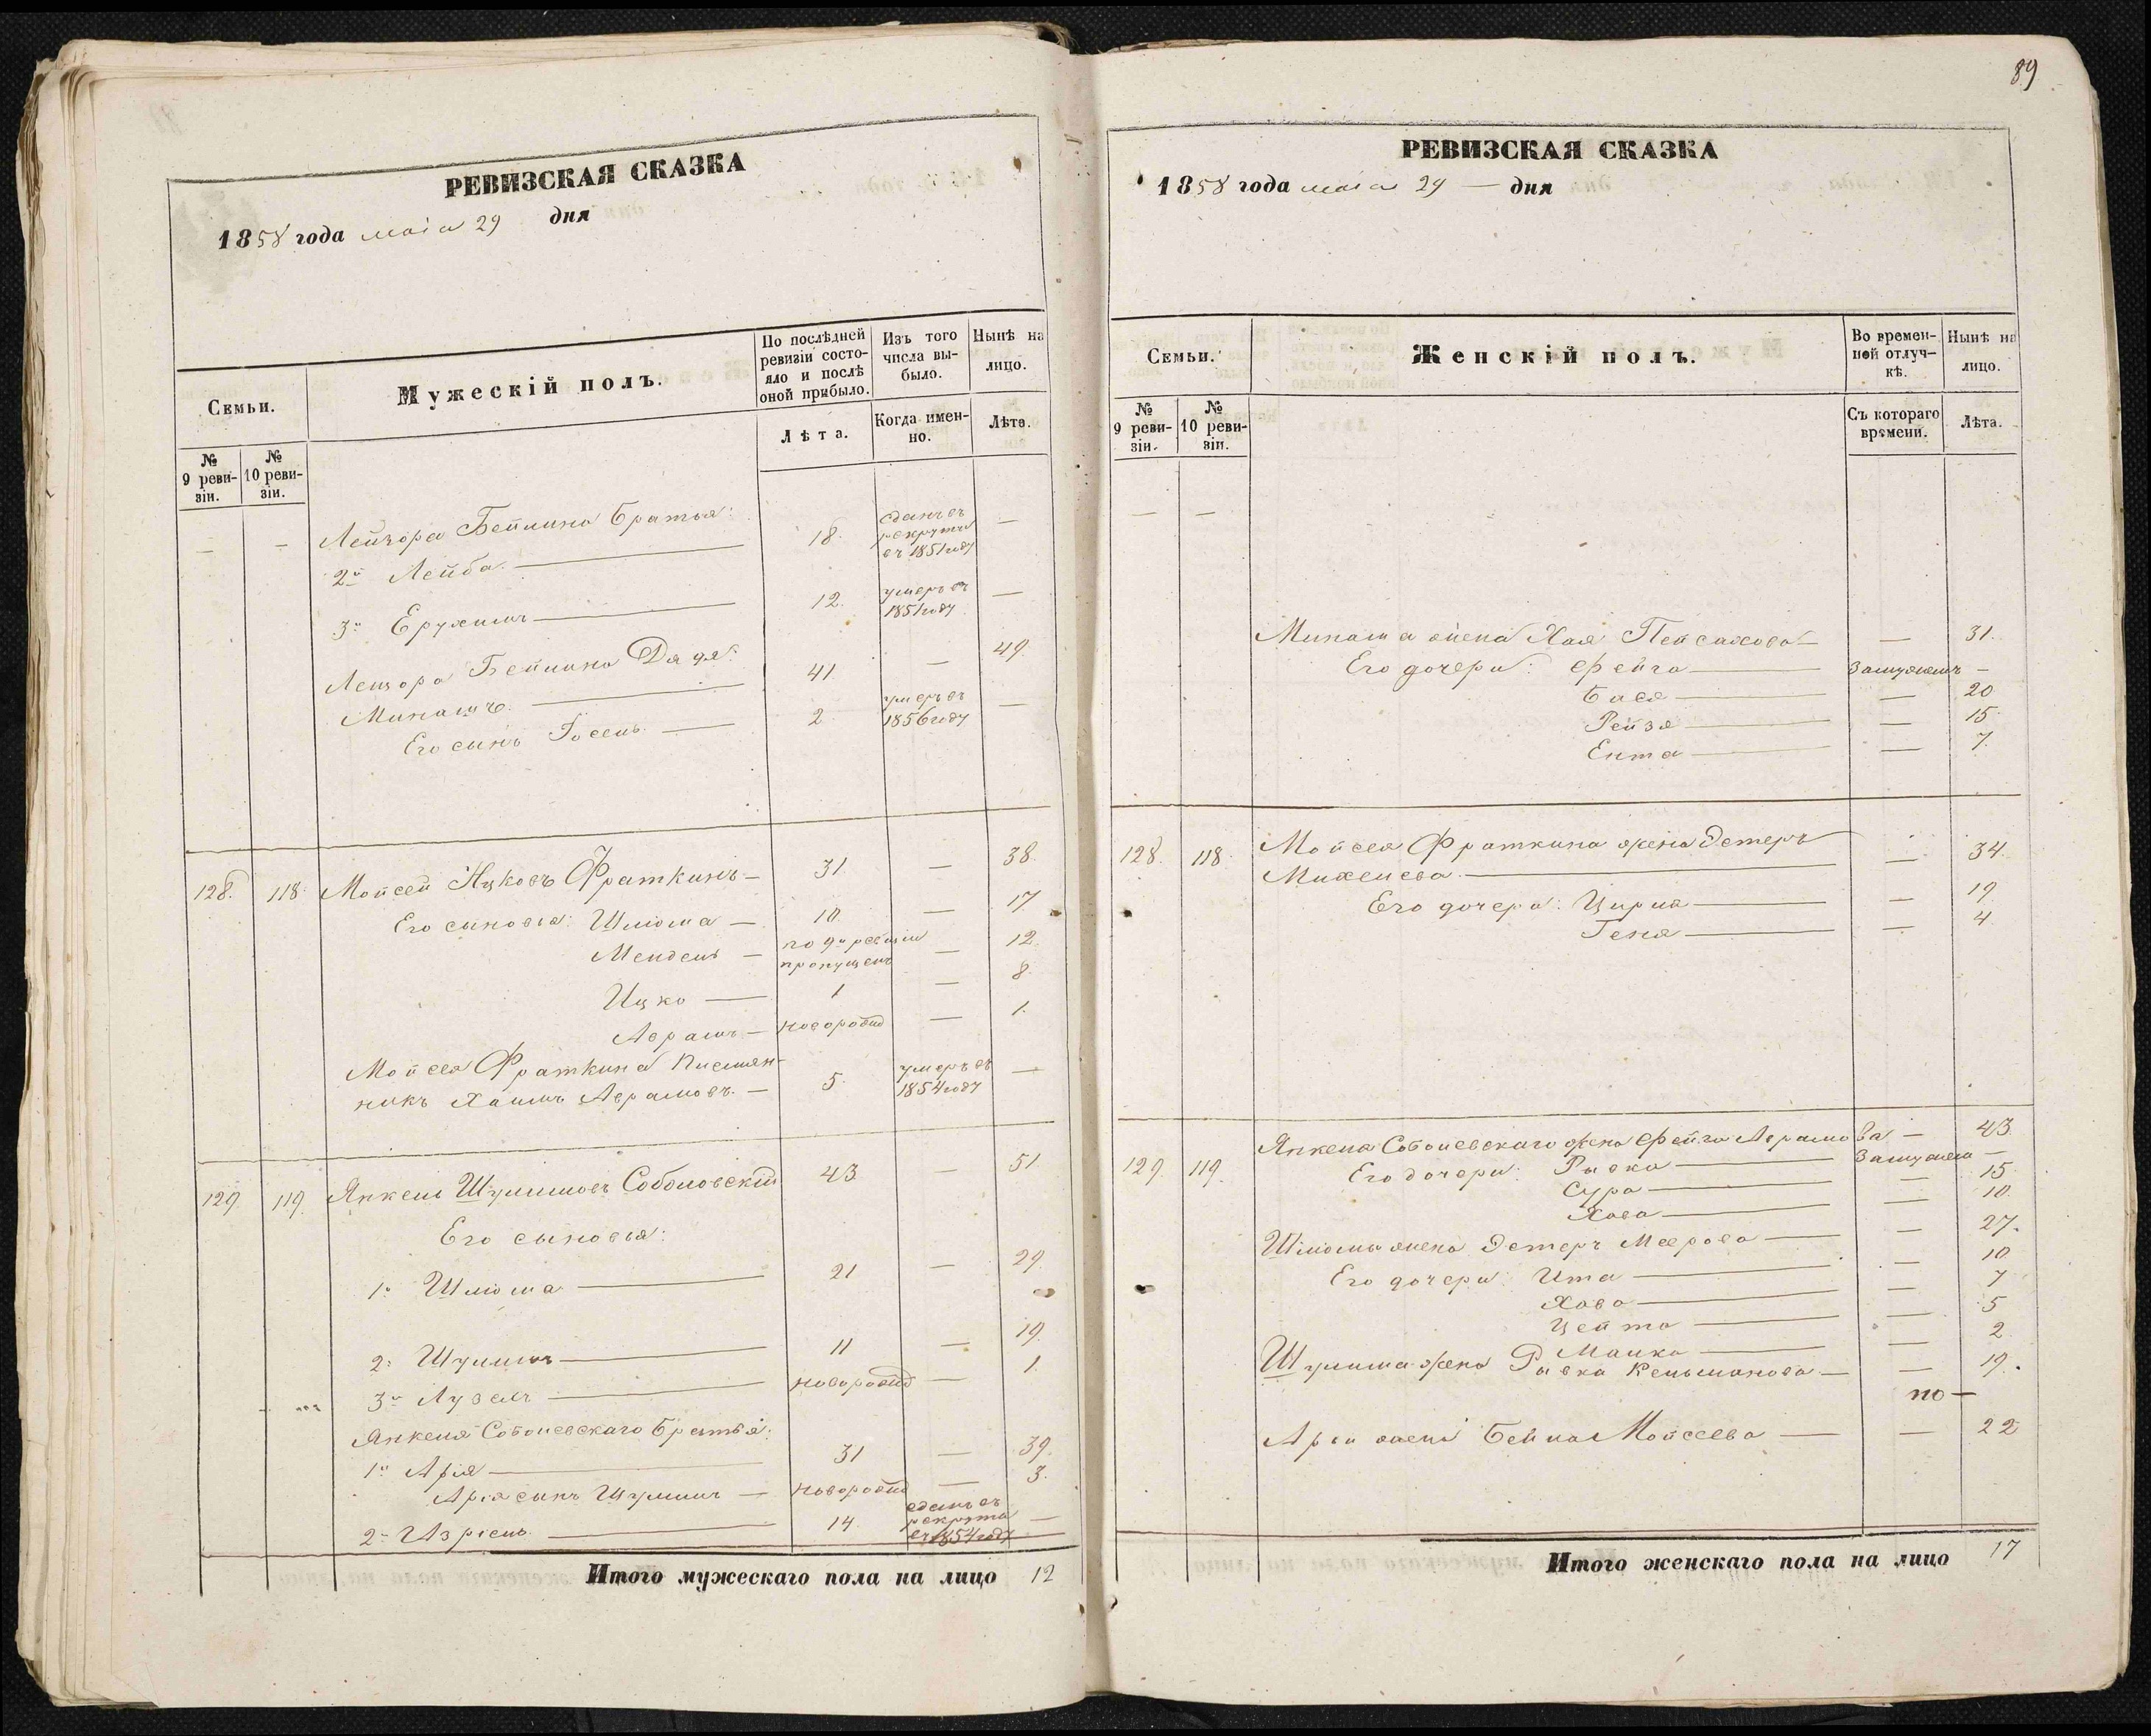 РЕВИЗСКАЯ СКАЗКА
1858 года маія 29 дня
Семьи.
Мужескій полъ.
По послѣдней ревизіи состояло и послѣ оной прибыло.
Изъ того числа выбыло.
Нынѣ на лицо.
№ 9 ревизіи.
№ 10 ревизіи.
Лѣта.
Когда именно.
Лѣта.
— — Лейзора Бейлина братья:
2й Лейба — 18. сданъ въ рекруты въ 1851 году —
3й Ерухимъ — 12. умеръ въ 1851 году —
Лейзора Бейлина Дядя:
Минашъ. — 41 — 49.
Его сынъ Іосель. — 2 умеръ въ 1856 году —
128. 118. Мойсей Ицковъ Фраткинъ — 31 — 38.
Его сыновья: Шліома — 10. — 17.
Мендель — по 9й ревизіи пропущенъ — 12.
Ицко — 1 — 8
Аврамъ — новорожд — 1.
Мойсея Фраткина племян-
никъ Хаимъ Аврамовъ. — 5. умеръ въ 1854 году —
129. 119. Янкель Шулимовъ Соболевскій 43 — 51
Его сыновья:
1й Шліома — 21 — 29.
2й Шулимъ — 11 — 19.
3й Лузеръ — новорожд — 1.
Янкеля Соболевскаго братья:
1й Арія — 31 — 39.
Арія сынъ Шулимъ — новорожд — 3.
2й Изріель. — 14 сданъ въ рекруты въ 1854 году —
Итого мужескаго пола на лицо 12
89
РЕВИЗСКАЯ СКАЗКА
1858 года маія 29 — дня
Семьи.
Женскій полъ.
Во временной отлучкѣ.
Нынѣ на лицо.
№ 9 ревизіи.
№ 10 ревизіи.
Съ котораго времени.
Лѣта.
— —
Минаша жена Хая Пейсахова — — 31.
Его дочери: Фейга — Замужемъ —
Бася — — 20
Рейза — — 15.
Ента — — 7.
128. 118. Мойсея Фраткина жена Эстеръ
Михелева. — — 34.
Его дочери: Цирля — — 19
Геня — — 4.
129. 119. Янкеля Соболевскаго жена Фейга Аврамова — 43.
Его дочери: Рывка — Замужемъ —
Сура — — 15
Хава — — 10.
Шліомы жена Эстеръ Меерова — — 27.
Его дочери: Ита — — 10
Хава — — 7
Цейта — — 5
Малка — — 2
Шулима жена Рывка Кельманова — — 19.
по —
Аріи жена Бейла Мойсеева — — 22
Итого женскаго пола на лицо 17